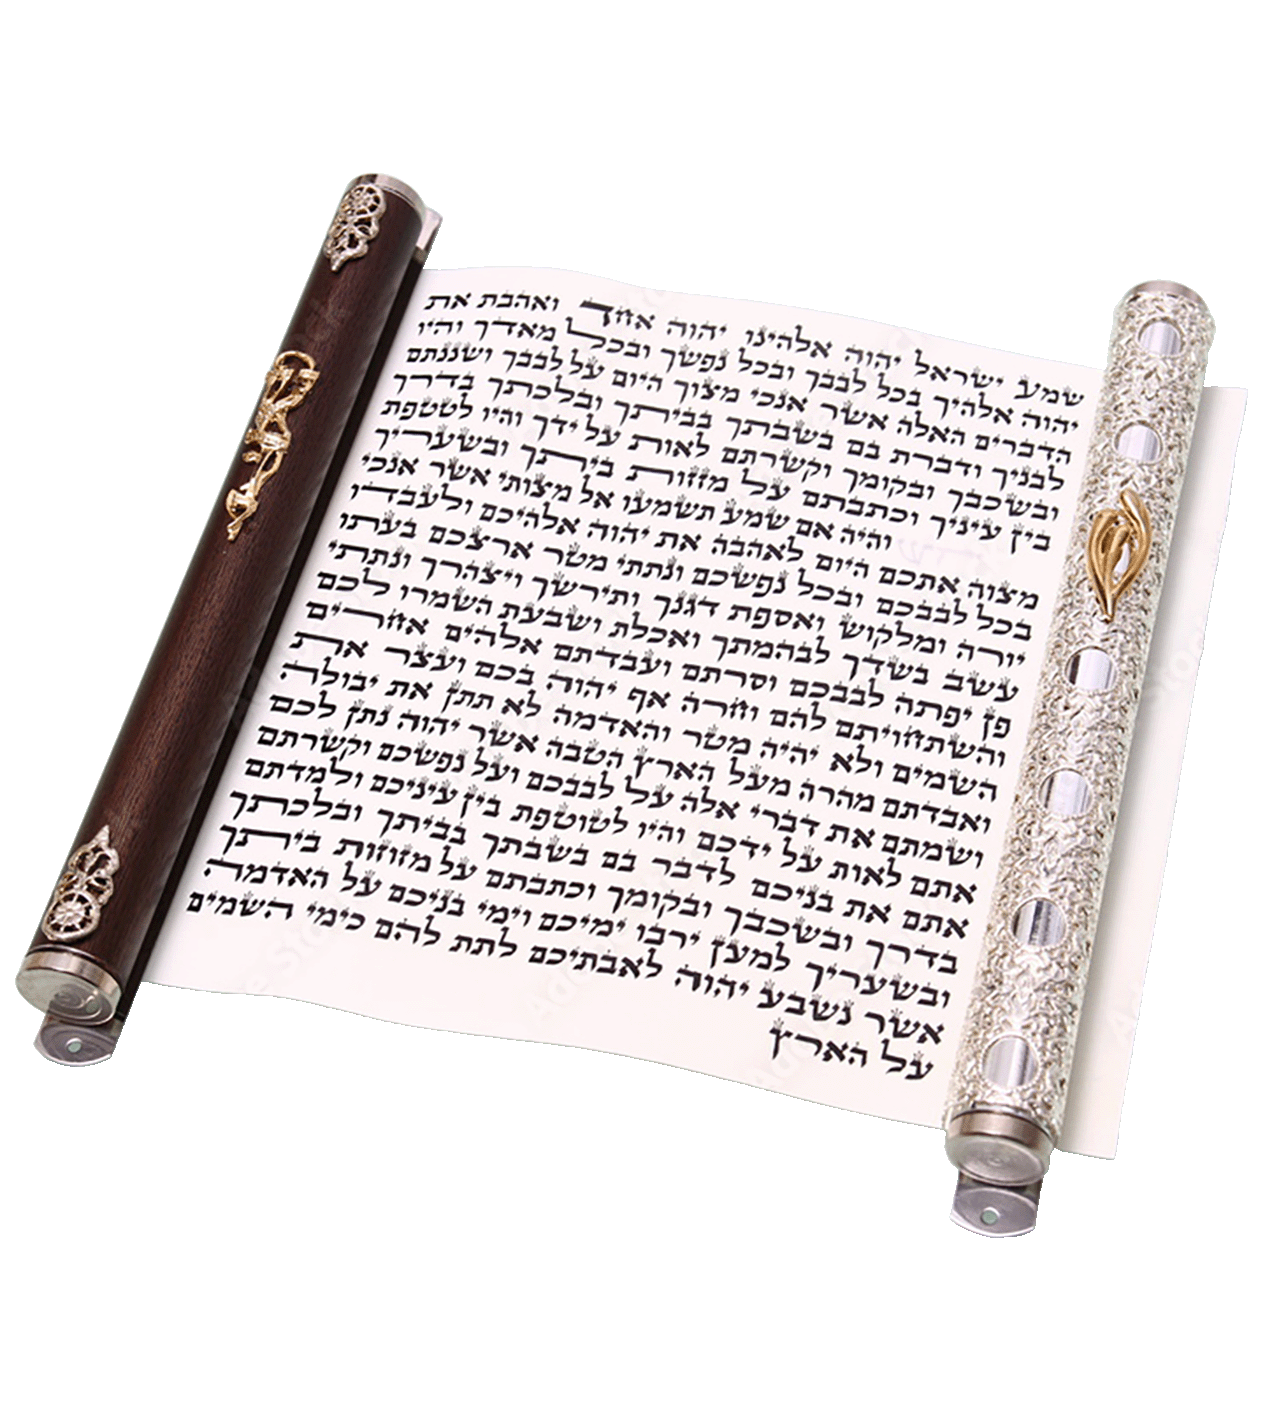 שמע ישראל יהוה אלהינו יהוה אחד ואהבת את
יהוה אלהיך בכל לבבך ובכל נפשך ובכל מאדך והיו
הדברים האלה אשר אנכי מצוך היום על לבבך ושננתם
לבניך ודברת בם בשבתך בביתך ובלכתך בדרך
ובשכבך ובקומך וקשרתם לאות על ידך והיו לטטפת
בין עיניך וכתבתם על מזזות ביתך ובשעריך
והיה אם שמע תשמעו אל מצותי אשר אנכי
מצוה אתכם היום לאהבה את יהוה אלהיכם ולעבדו
בכל לבבכם ובכל נפשכם ונתתי מטר ארצכם בעתו
יורה ומלקוש ואספת דגנך ותירשך ויצהרך ונתתי
עשב בשדך לבהמתך ואכלת ושבעת השמרו לכם
פן יפתה לבבכם וסרתם ועבדתם אלהים אחרים
והשתחויתם להם וחרה אף יהוה בכם ועצר את
השמים ולא יהיה מטר והאדמה לא תתן את יבולה
ואבדתם מהרה מעל הארץ הטבה אשר יהוה נתן לכם
ושמתם את דברי אלה על לבבכם ועל נפשכם וקשרתם
אתם לאות על ידכם והיו לטוטפת בין עיניכם ולמדתם
אתם את בניכם לדבר בם בשבתך בביתך ובלכתך
בדרך ובשכבך ובקומך וכתבתם על מזוזות ביתך
ובשעריך למען ירבו ימיכם וימי בניכם על האדמה
אשר נשבע יהוה לאבתיכם לתת להם כימי השמים
על הארץ
שדי
ש